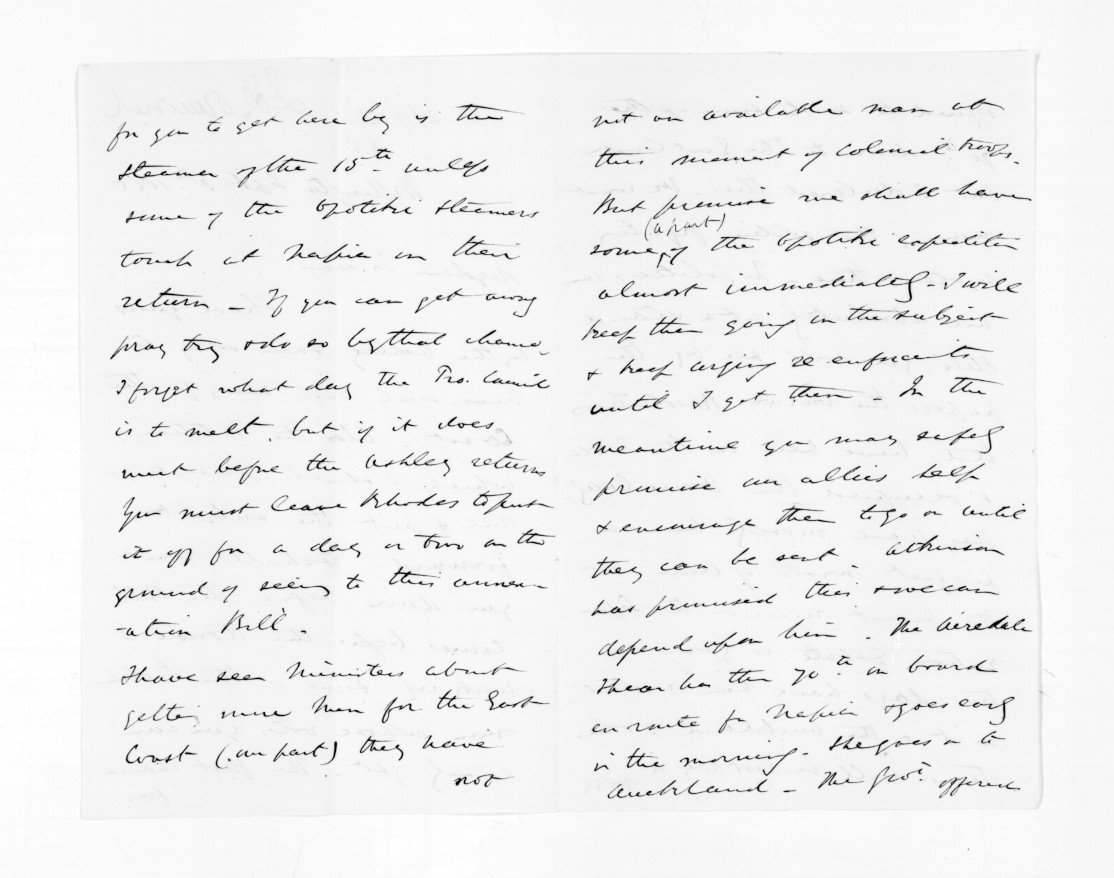 for you to get here by is the
steamer of the 15th unless
some of the Opotiki steamers
touch at Napier on their
return - If you can get away
pray try & do so by that chance.
I forget what day the Pro. Council
is to meet, but if it does
meet before the Ashley returns
you must leave Rhodes to put
it off for a day or two on the
ground of seeing to this annex-
-ation Bill.
I have seen Ministers about
getting more men for the East
Coast (our part) they have
not
not an available man at
this moment of Colonial troops.
But promise we shall have
some (a part) of the Opotiki expedition
almost immediately - I will
keep them going on the subject
& keep urging re enforcements
until I get them - In the
meantime you may safely
promise our allies help
& encourage them to go on until
they can be sent. Atkinson
has promised this & we can
depend upon him. The Airedale
I hear has the 70th on board
en route for Napier & goes early
in the morning. She goes on to
Auckland - The Govt. offered